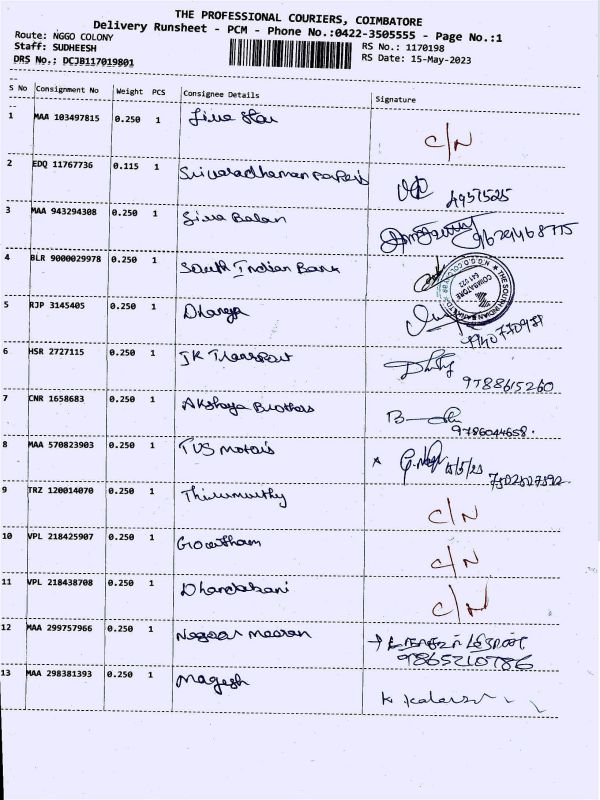 THE PROFESSIONAL COURIERS, COIMBATORE
Delivery Runsheet - PCM - Phone No.:0422-3505555 - Page No.:1
Route: NGGO COLONY
RS No.: 1170198
Staff: SUDHEESH
RS Date: 15-May-2023
DRS No.: DCJB117019801
S No Consignment No Weight PCS Consignee Details Signature
1 MAA 103497815 0.250 1 Siva Star C/N
2 EDQ 11767736 0.115 1 Srivaradhaman papers
3 MAA 943294308 0.250 1 Siva Balan 9629468775
4 BLR 9000029978 0.250 1 South Indian Bank
THE SOUTH INDIAN BANK LTD. N.G.G.O. COLONY COIMBATORE 641 022
5 RJP 3145405 0.250 1 Dhanya
6 HSR 2727115 0.250 1 JK Transport
9788615260
7 CNR 1658683 0.250 1 Akshaya Brothers
9786044658.
8 MAA 570823903 0.250 1 TVS motors 15/5/23
9 TRZ 120014070 0.250 1 Thirumurthy C/N
10 VPL 218425907 0.250 1 Gowtham C/N
11 VPL 218438708 0.250 1 Dhandabani C/N
12 MAA 299757966 0.250 1 Nagoor meeran →
9865210786
13 MAA 298381393 0.250 1 Magesh